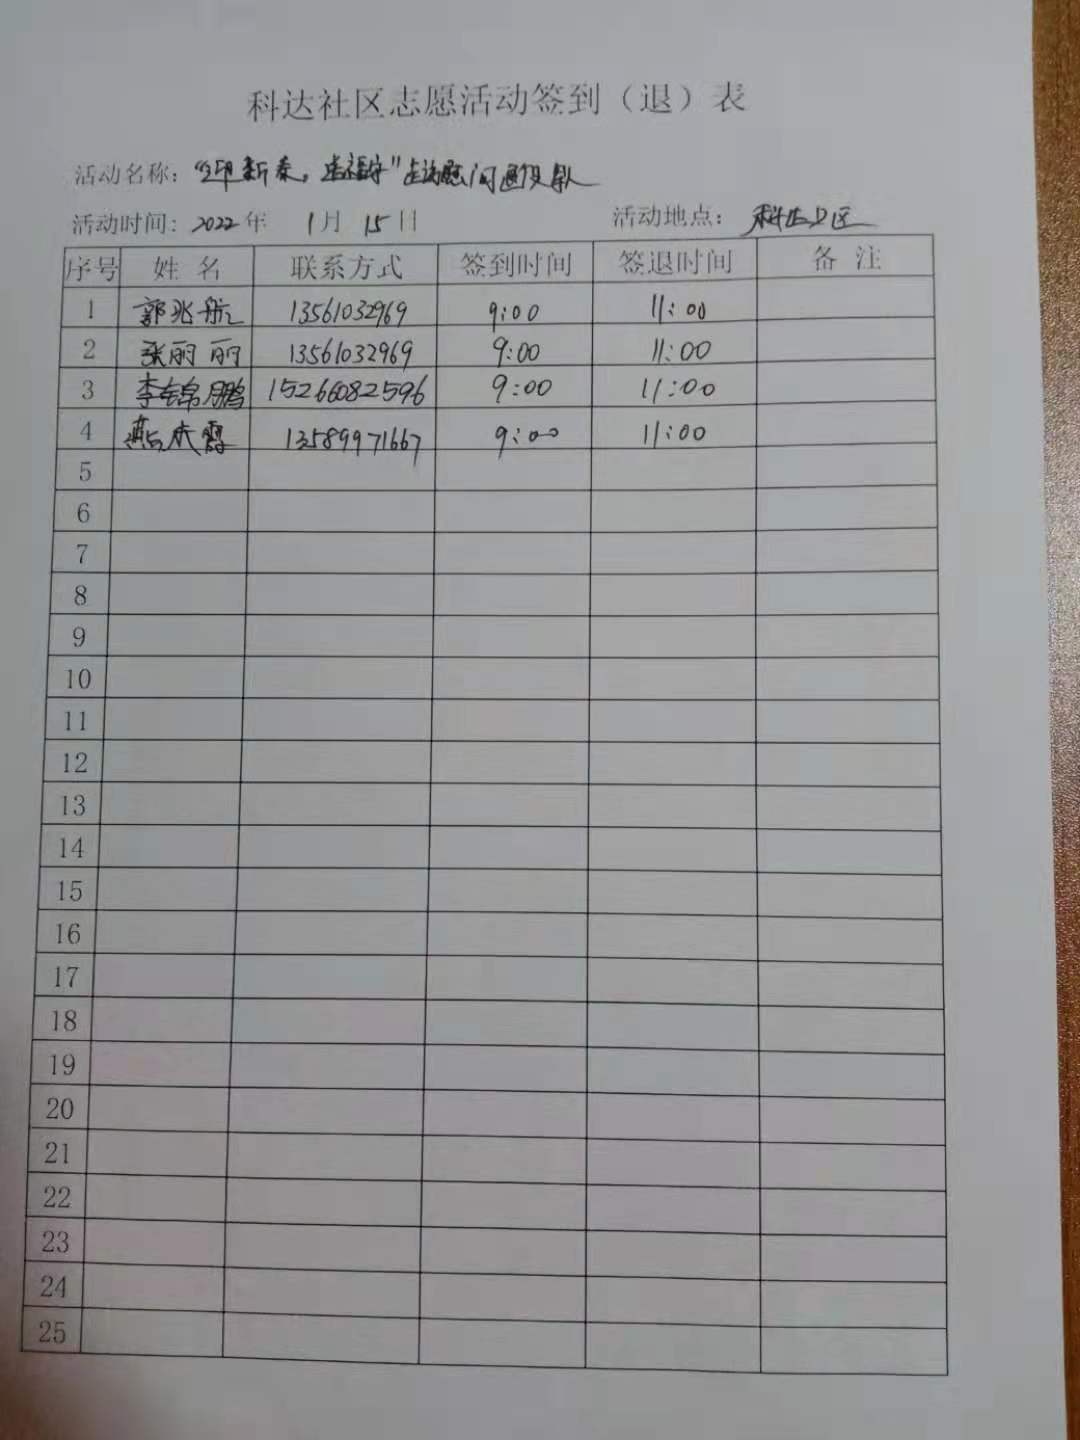 科达社区志愿活动签到（退）表
活动名称：“迎新春，送福字”走访慰问退役军人
活动时间：2022年 1月 15日 活动地点：科达社区
序号 姓 名 联系方式 签到时间 签退时间 备 注
1 郭兆航 13561032969 9:00 11:00
2 张丽丽 13561032969 9:00 11:00
3 李锦鹏 15266082596 9:00 11:00
4 13589971667 9:00 11:00
5
6
7
8
9
10
11
12
13
14
15
16
17
18
19
20
21
22
23
24
25